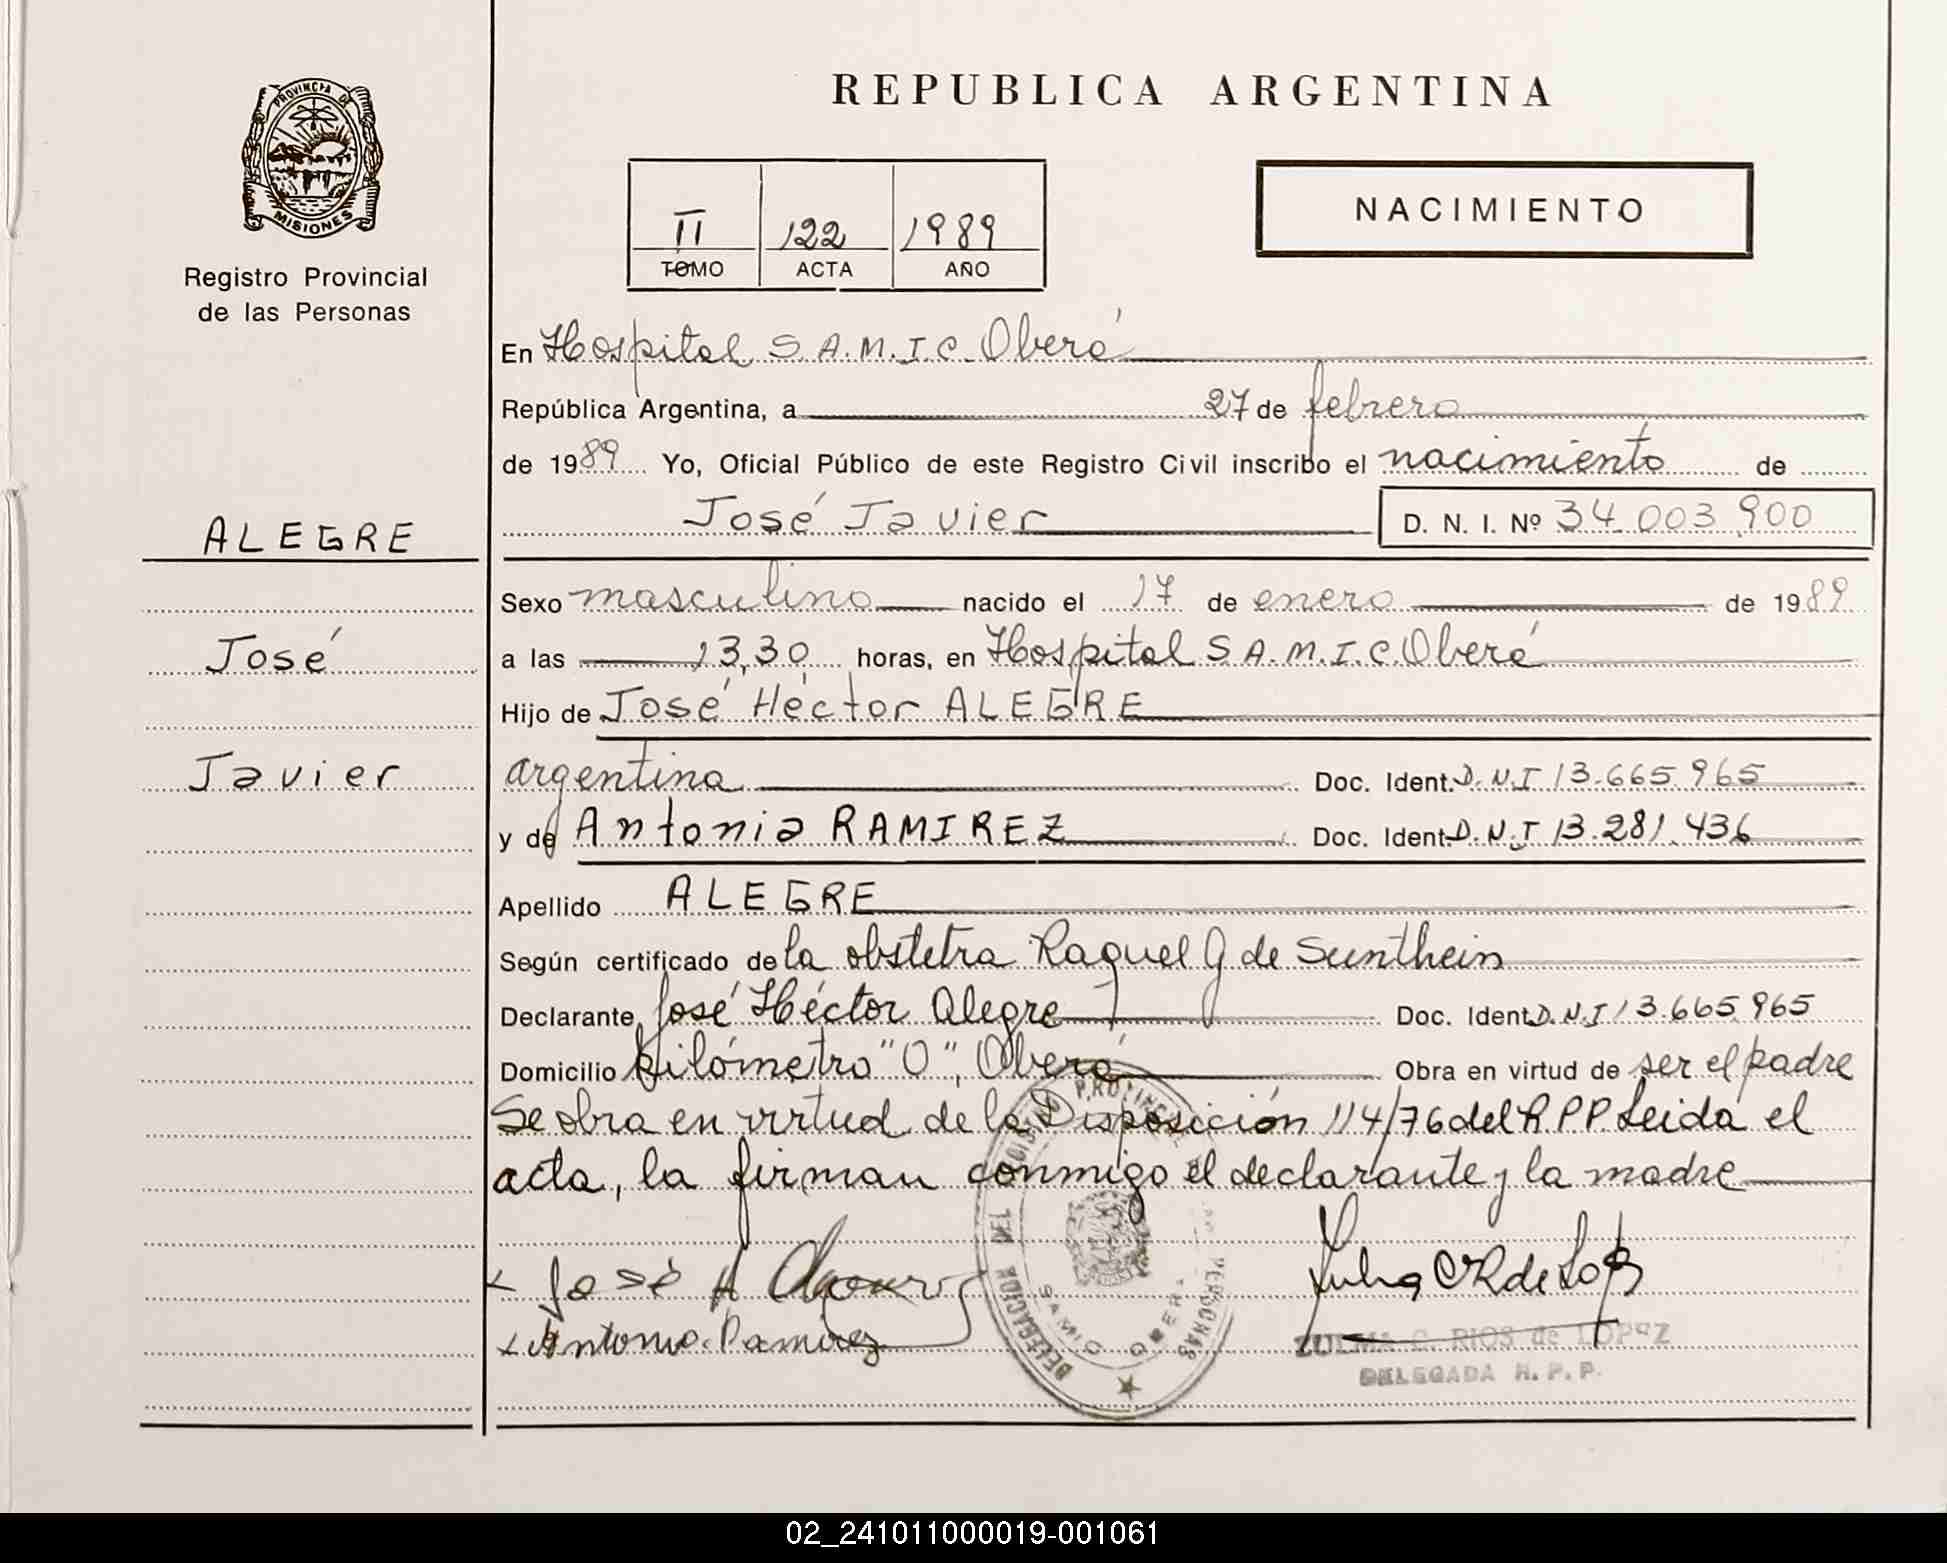 PROVINCIA DE
MISIONES
Registro Provincial
de las Personas
ALEGRE
José
Javier
REPUBLICA ARGENTINA
II 122 1989
TOMO ACTA AÑO
NACIMIENTO
En Hospital S.A.M.I.C. Oberá
República Argentina, a 27 de febrero
de 1989 Yo, Oficial Público de este Registro Civil inscribo el nacimiento de
José Javier D. N. I. Nº 34.003.900
Sexo masculino nacido el 17 de enero de 1989
a las 13,30 horas, en Hospital S.A.M.I.C. Oberá
Hijo de José Héctor ALEGRE
argentina Doc. Ident. D.N.I 13.665.965
y de Antonia RAMIREZ Doc. Ident. D.N.I 13.281.436
Apellido ALEGRE
Según certificado de la obstetra Raquel G de Sunthein
Declarante José Héctor Alegre Doc. Ident. D.N.I 13.665.965
Domicilio kilómetro "0", Oberá Obra en virtud de ser el padre
Se obra en virtud de la Disposición 114/76 del R.P.P. Leida el
acta, la firman conmigo el declarante y la madre
José H
Antonia Ramirez
DELEGACION DEL REGISTRO PROVINCIAL PERSONAS
SAMIC OBERA
ZULMA C. RIOS de LOPEZ
DELEGADA R. P. P.
02_241011000019-001061